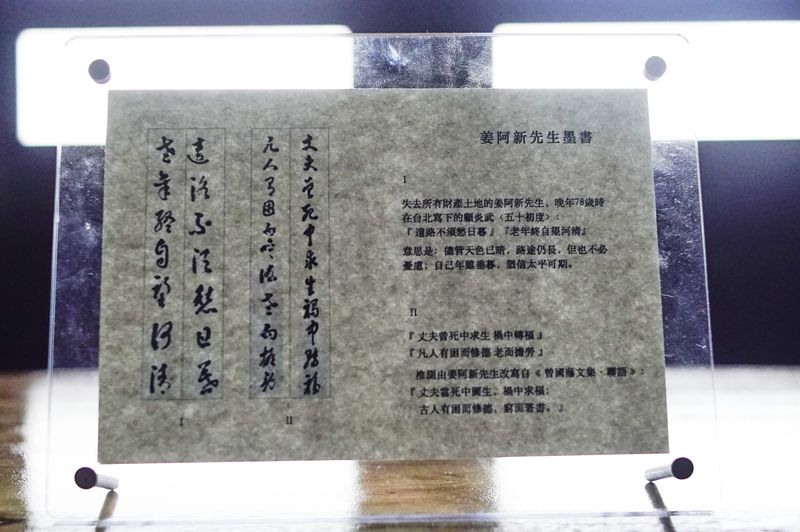 遠路不須愁日暮
老年終自望河清
I
丈夫曾死中求生禍中轉福
凡人有困而修德老而擔勞
II
姜阿新先生墨書
I
失去所有財產土地的姜阿新先生，晚年78歲時
在台北寫下的顧炎武〈五十初度〉：
『遠路不須愁日暮』『老年終自望河清』
意思是：儘管天色已暗，路途仍長，但也不必
憂慮；自己年雖垂暮，猶信太平可期。
II
『丈夫曾死中求生 禍中轉福』
『凡人有困而修德 老而擔勞』
推測由姜阿新先生改寫自《曾國藩文集・聯語》：
『丈夫當死中圖生，禍中求福；
古人有困而修德，窮而著書。』